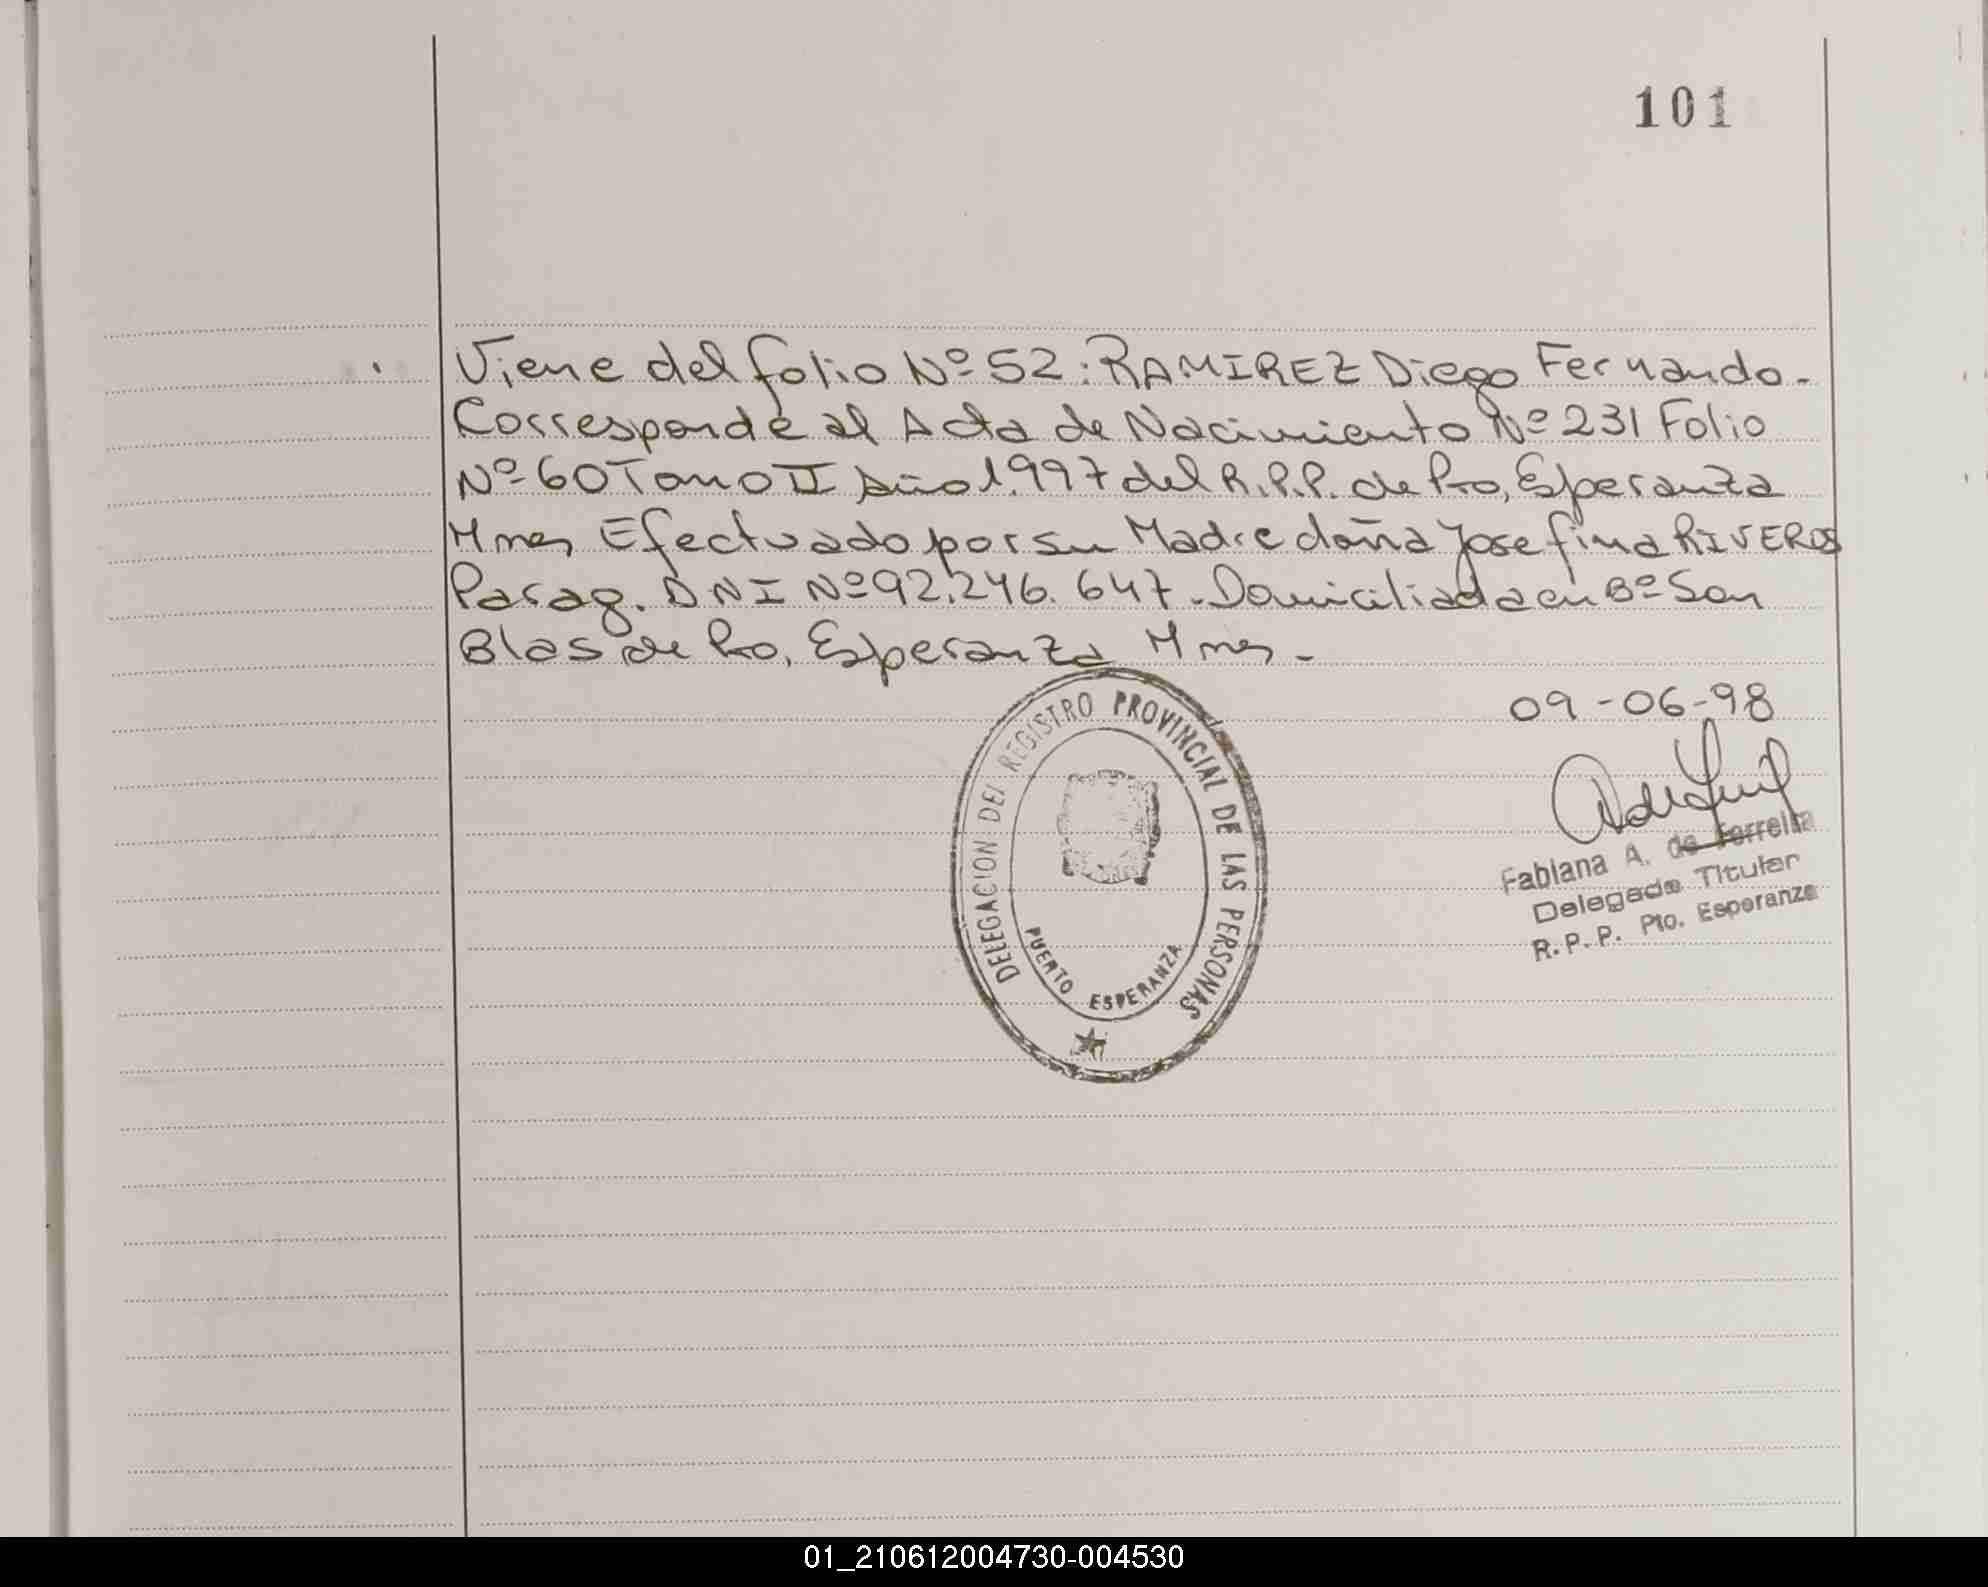 101
Viene del folio Nº 52: RAMIREZ Diego Fernando.
Corresponde al Acta de Nacimiento Nº 231 Folio
Nº 60 Tomo II Año 1.997 del R.P.P. de Pto, Esperanza
Mnes Efectuado por su Madre doña Josefina RIVEROS
Parag. DNI Nº 92.246.647. Domiciliada en Bº San
Blas de Pto, Esperanza Mnes.
09-06-98
DELEGACION DEL REGISTRO PROVINCIAL DE LAS PERSONAS
PUERTO ESPERANZA
Fabiana A. de Ferreira
Delegada Titular
R.P.P. Pto. Esperanza
01_210612004730-004530